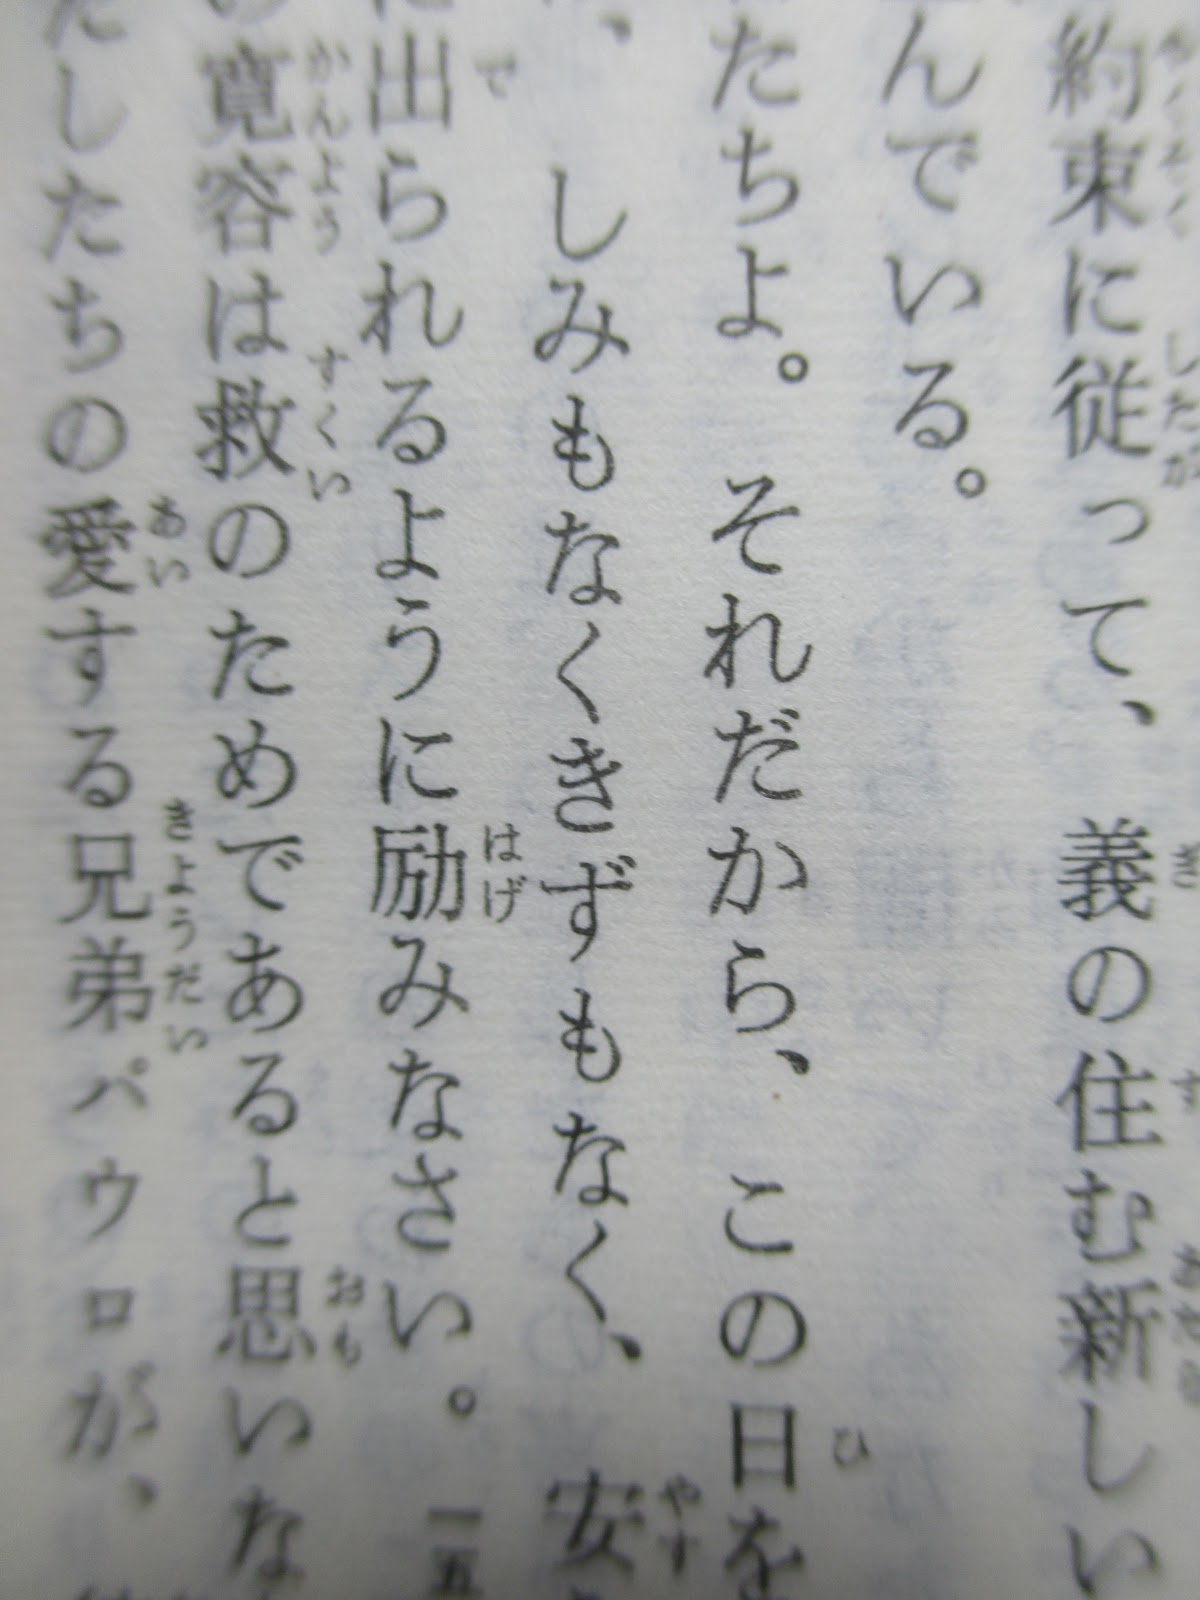 約束に従って、義の住む新しい
んでいる。
たちよ。それだから、この日を
、しみもなくきずもなく、安
に出られるように励みなさい。一五
の寛容は救のためであると思いな
たしたちの愛する兄弟パウロが、